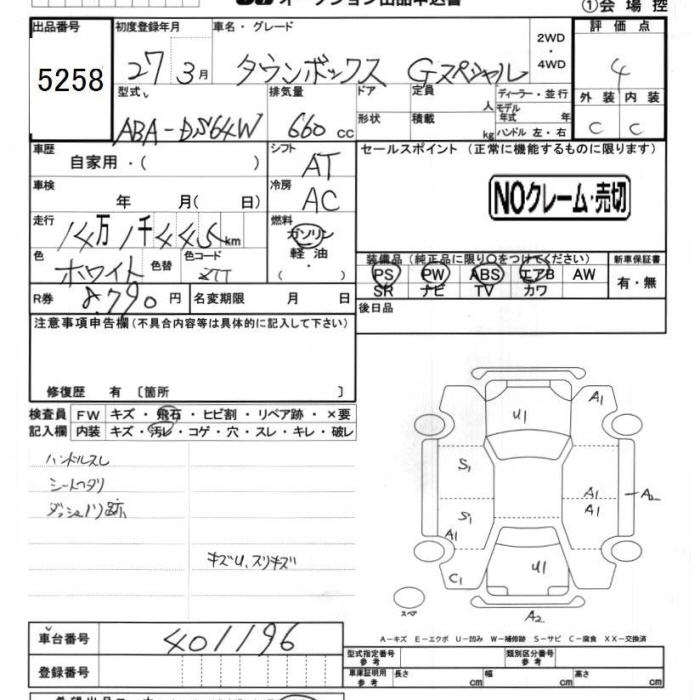 オークション出品申込書
①会場控
出品番号
5258
初度登録年月
車名・グレード
27 3月
タウンボックス Gスペシャル
2WD
・
4WD
評価点
4
外装 内装
C C
型式
ABA-DS64W
排気量
660 cc
ドア
形状
定員
人
積載
kg
ディーラー・並行
モデル年式 年
ハンドル 左・右
車歴
自家用・( )
シフト
AT
車検
年 月( 日)
冷房
AC
走行
14万1千445km
燃料
ガソリン
軽油
・
( )
色
ホワイト
色替
色コード
R券
8,790円
名変期限 月 日
セールスポイント (正常に機能するものに限ります)
NOクレーム・売切
装備品(純正品に限り○をつけてください)
PS PW ABS エアB AW
SR ナビ TV カワ
新車保証書
有・無
後日品
注意事項申告欄(不具合内容等は具体的に記入して下さい)
修復歴 有 〔箇所 〕
検査員
記入欄
FW キズ・飛石・ヒビ割・リペア跡・×要
内装 キズ・汚レ・コゲ・穴・スレ・キレ・破レ
ハンドルスレ
シートヘタリ
ダッシュノリ跡
キズU、スリキズ
A1
U1
S1
A1
A1
A2
S1
A1
U1
C1
スペア
A2
A-キズ E-エクボ U-凹み W-補修跡 S-サビ C-腐食 XX-交換済
車台番号
401196
登録番号
型式指定番号
参考
類別区分番号
参考
車庫証明用
参考
長さ cm
幅 cm
高さ cm